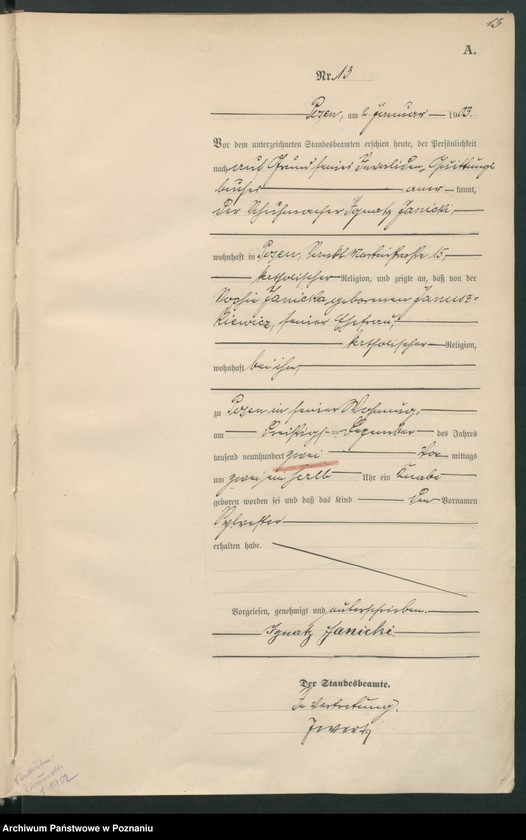 13
A.
Nr. 13
Posen, am 2 Januar 1903.
Vor dem unterzeichneten Standesbeamten erschien heute, der Persönlichkeit
nach auf Grund seines Invaliden Quittungs
buches aner- kannt,
der Schuhmacher Ignatz Janicki,
wohnhaft in Posen, Sankt Martinstraße 15,
katholischer Religion, und zeigte an, daß von der
Sophie Janicka geborenen Janusz-
kiewicz, seiner Ehefrau,
katholischer Religion,
wohnhaft bei ihm,
zu Posen in seiner Wohnung,
am Dezember des Jahres
tausend neunhundert zwei Vor mittags
um zwei ein halb Uhr ein Knabe
geboren worden sei und daß das Kind den Vornamen
Sylvester
erhalten habe.
Vorgelesen, genehmigt und unterschrieben.
Ignatz Janicki
Der Standesbeamte.
In Vertretung.
1902
Archiwum Państwowe w Poznaniu